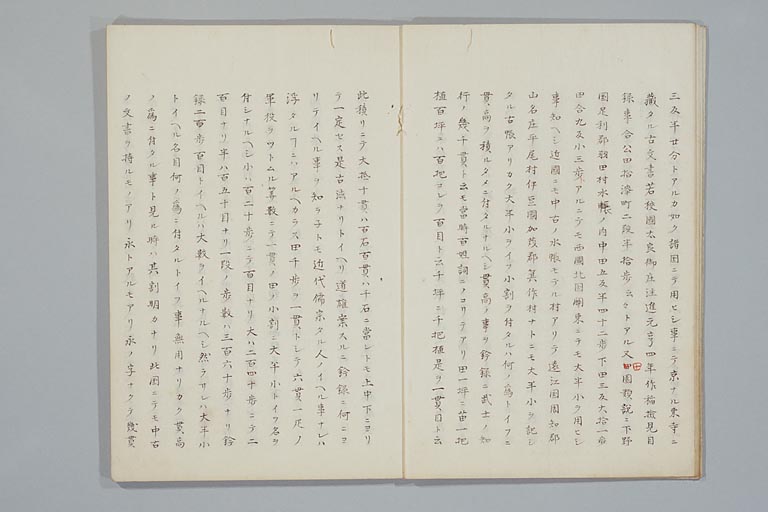 三反半廿分トアルカ如ク諸国ニテ用ヒシ事ニテ京ナル東寺ニ
蔵タル古文書若狭國太良御庄注進元亨四年作稲検見目
録事合公田拾漆町二段半拾歩云々トアル又田園類説ニ下野
國足利郡羽田村水帳ノ内中田五反半四十二歩下田三反大拾一歩
田合九反小三歩アルニテモ西國北国関東ニテモ大半小ヲ用ヒシ
事知ヘシ近國ニモ中古ノ水帳モテル村アリテ遠江国周知郡
山名庄平尾村伊豆國加茂郡箕作村ナトニモ大半小ヲ記シ
タル古帳アリカク大半小ヲイフ小割ヲ付タルハ何ノ為トイフニ
貫高ヲ積ルタメニ付タルナルヘシ貫高ノ事ヲ鈐録ニ武士ノ知
行ノ幾千貫ト云モ當時百姓詞ニノコリテアリ田一坪ニ苗一把
植百坪ニハ百把ヨレヲ百目ト云千坪ニ千把植是ヲ一貫目ト云
此積リニテ大拾十貫ハ百石百貫ハ千石ニ當レトモ上中下ニヨリ
テ一定セス是古法ナリトイヘリ道雄案スルニ鈐録ニ何ニヨ
リテイヘル事ヲ知ラ子トモ近代儒宗タル人ノイヘル事ナレハ
浮タルフニハアルヘカラス田千歩ヲ一貫トシテ六貫一疋ノ
軍役ヲツトムル算数ニテ一貫ノ田ノ小割ニ大半小トイフ名ヲ
付シナルヘシ小ハ百二十歩ニテ百目ナリ大ハ二百四十歩ニテ二
百目ナリ半ハ百五十目ナリ一段ノ歩数ハ三百六十歩ナリ鈐
録ニ百歩百目トイヘルハ大数ヲイヘルナルヘシ然ラサレハ大半小
トイヘル名目何ノ為ニ付タルトイフ事無用ナリカク貫高
ノ為ニ付タル事ト見ル時ハ其割明カナリ此国ニテモ中古
ノ文書ヲ持ルモノアリ永トアルモアリ永ノ字ナクテ幾貫